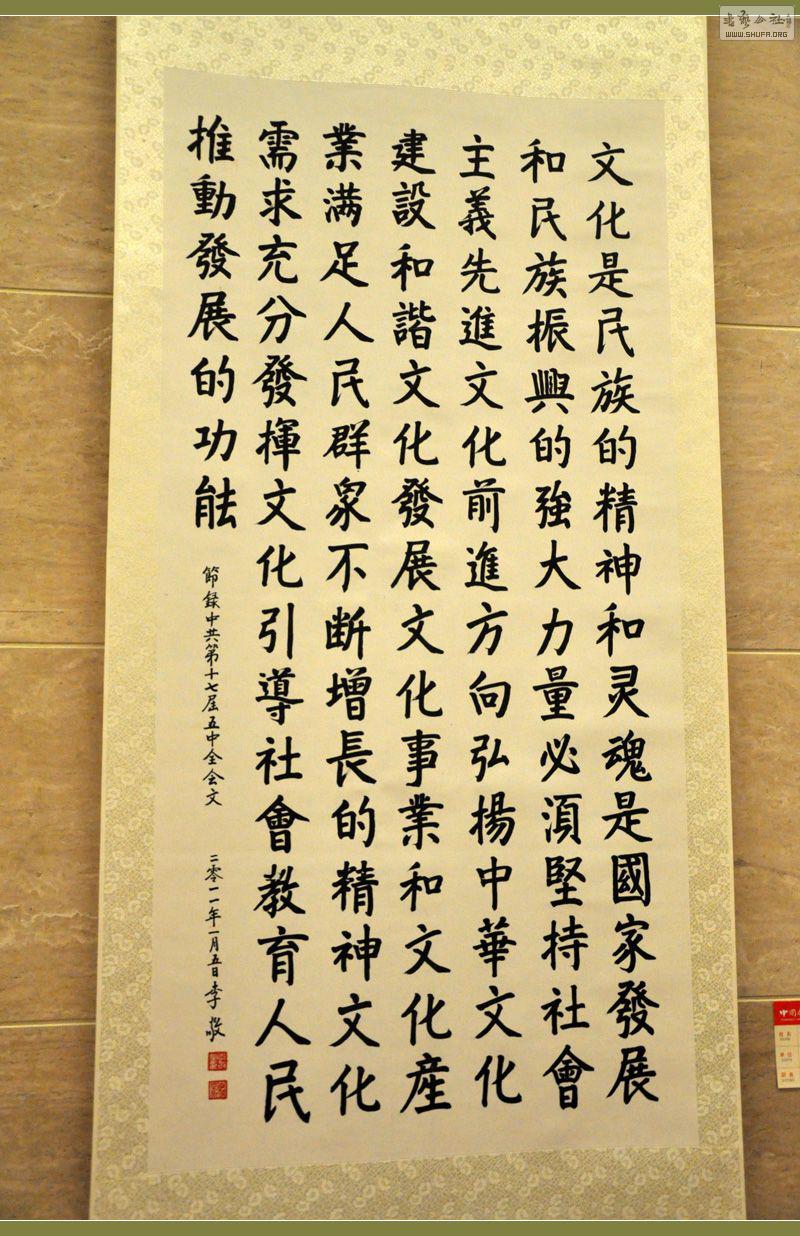 文化是民族的精神和灵魂是國家發展
和民族振興的強大力量必須堅持社會
主義先進文化前進方向弘揚中華文化
建設和諧文化發展文化事業和文化産
業满足人民群衆不斷增長的精神文化
需求充分發揮文化引導社會教育人民
推動發展的功能
節録中共第十七屆五中全会文
二零一一年一月五日李敬
书艺公社
WWW.SHUFA.ORG
中国